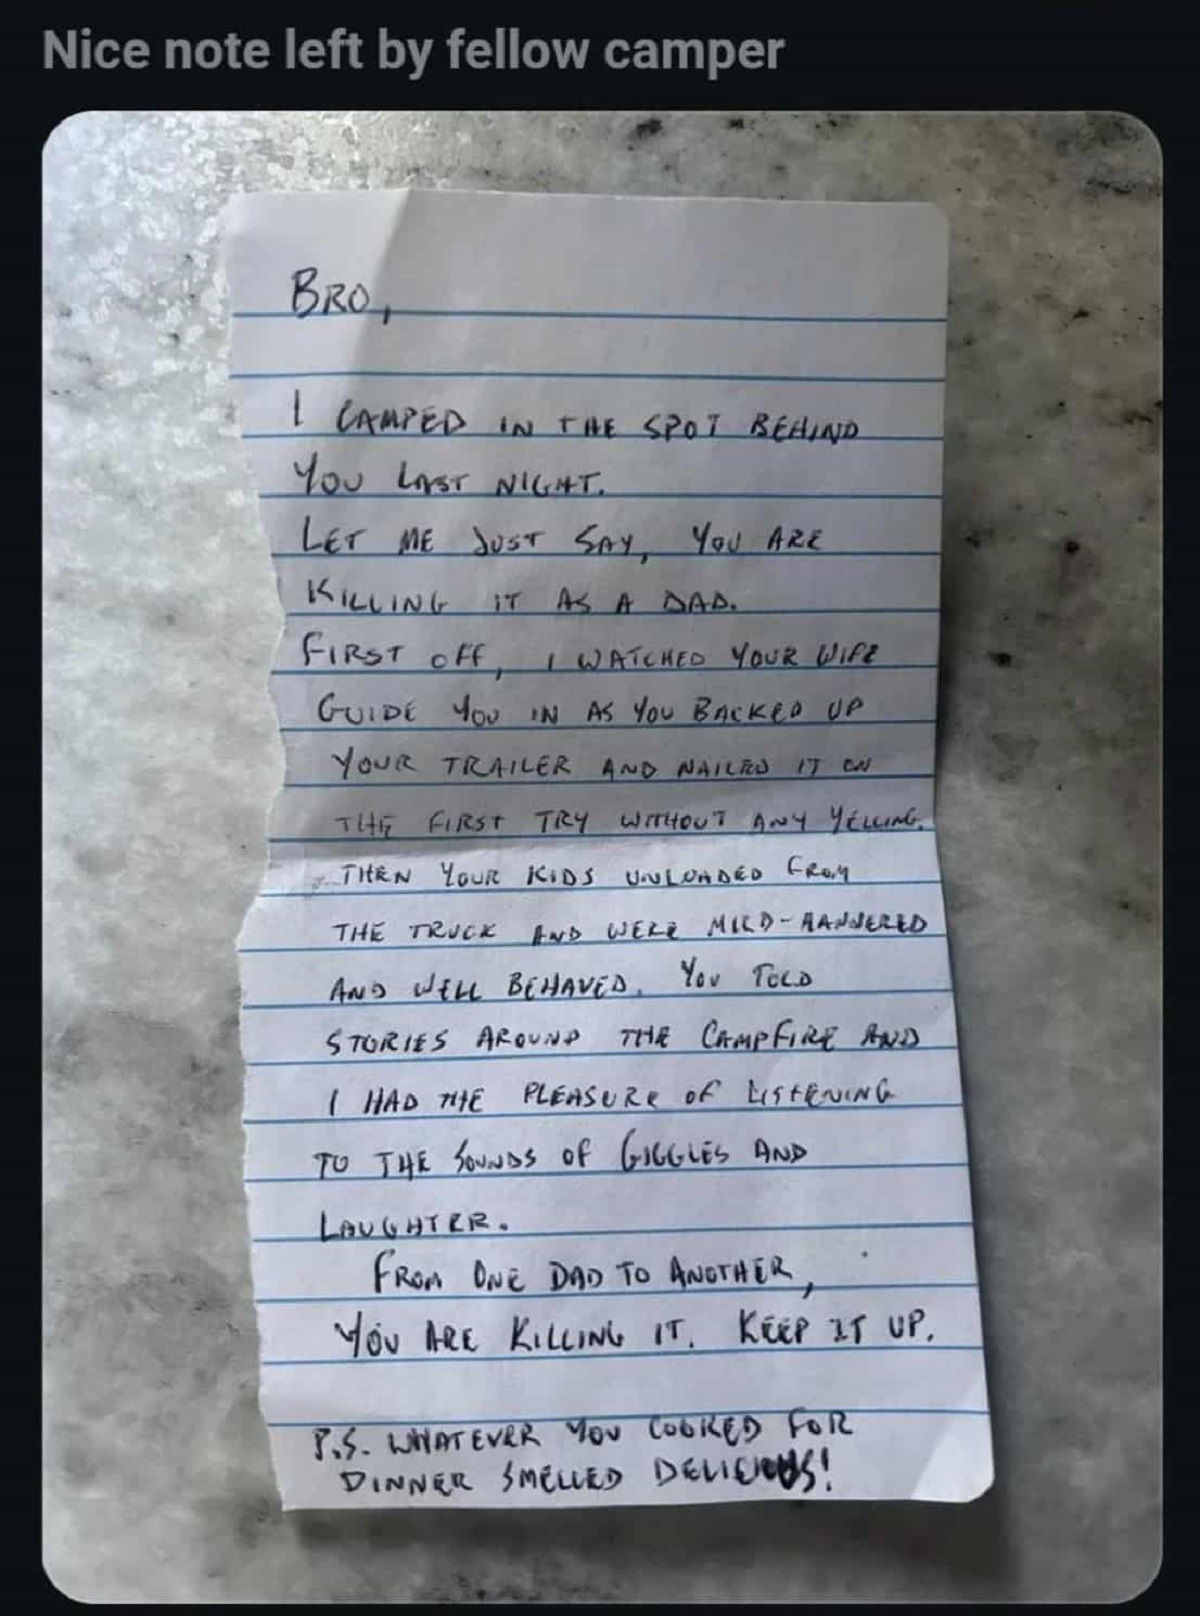 Nice note left by fellow camper
BRO,
I CAMPED IN THE SPOT BEHIND
YOU LAST NIGHT.
LET ME JUST SAY, YOU ARE
KILLING IT AS A DAD.
FIRST OFF, I WATCHED YOUR WIFE
GUIDE YOU IN AS YOU BACKED UP
YOUR TRAILER AND NAILED IT ON
THE FIRST TRY WITHOUT ANY YELLING.
THEN YOUR KIDS UNLOADED FROM
THE TRUCK AND WERE MILD-MANNERED
AND WELL BEHAVED. YOU TOLD
STORIES AROUND THE CAMPFIRE AND
I HAD THE PLEASURE OF LISTENING
TO THE SOUNDS OF GIGGLES AND
LAUGHTER.
FROM ONE DAD TO ANOTHER,
YOU ARE KILLING IT. KEEP IT UP.
P.S. WHATEVER YOU COOKED FOR
DINNER SMELLED DELICIOUS!